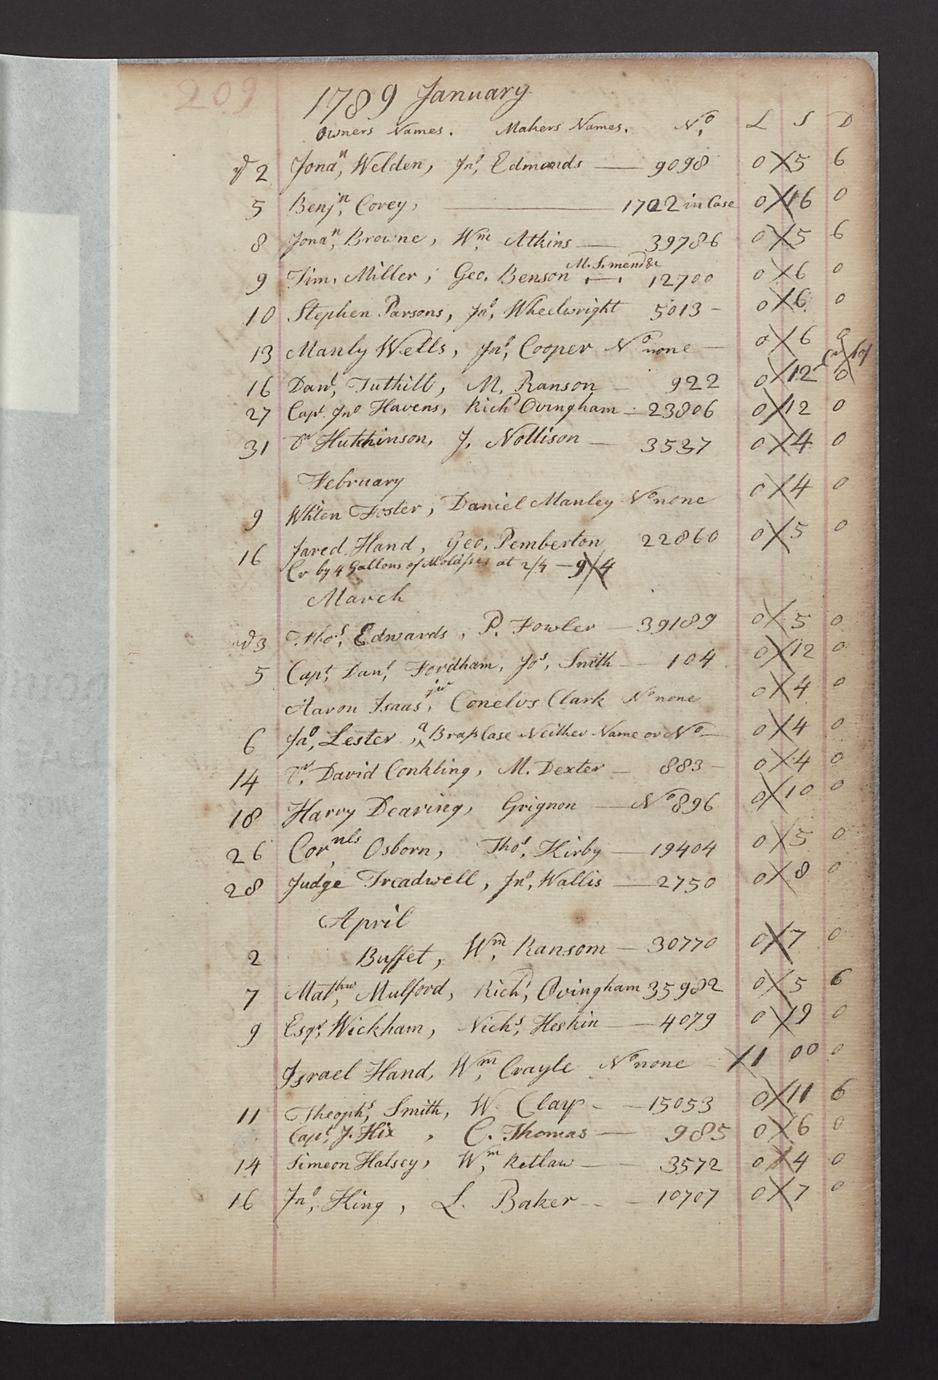 209
1789 January
Owners Names. Makers Names. No. L S D
d 2 Jonan. Welden, Jno. Edmonds — 9098 0 5 6
5 Benjn. Corey, — 1722 in Case 0 16 0
8 Jonan. Browne, Wm. Atkins — 39786 0 5 6
9 Tim. Miller, Geo. Benson M. S. mend &c 12700 0 6 0
10 Stephen Parsons, Jno. Wheelwright 5013 - 0 6 0
13 Manly Wells, Jno. Cooper No none — 0 6 0
16 Danl. Tuthill, M. Ranson — 922 0 12 0
27 Capt. Jno Havens, Richd Ovingham - 23806 0 12 0
31 Dr Hutchinson, J. Nollison — 3537 0 4 0
February
9 Foster, Daniel Manley No none 0 4 0
16 Jared Hand, Geo. Pemberton 22860 0 5 0
Cr by 4 Gallons of Molasses at 2/4 — 9/4
March
d 3 Thos. Edwards, P. Fowler — 39189 0 5 0
5 Capt. Danl. Fordham, Jos. Smith — 104 0 12 0
Aaron Isaas, junr Conelus Clark No none 0 4 0
6 Jno. Lester, a Brass Case Neither Name or No — 0 4 0
14 Dr. David Conkling, M. Dexter — 883 — 0 4 0
18 Harry Dearing, Grignon — No 896 0 10 0
26 Cornls Osborn, Thos. Kirby — 19404 0 5 0
28 Judge Treadwell, Jno. Wallis — 2750 0 8 0
April
2 Buffet, Wm. Ransom — 30770 0 7 0
7 Mathw. Mulford, Richd. Ovingham 35982 0 5 6
9 Esqr. Wickham, Nichs. Heskin — 4079 0 19 0
Israel Hand, Wm. Crayle No none 1 00 0
11 Theophs. Smith, W. Clay - — 15053 0 11 6
Capt. J. Hix, C. Thomas — 985 0 6 0
14 Simeon Halsey, Wm. Retlaw — 3572 0 4 0
16 Jno. King, L. Baker - - 10707 0 7 0